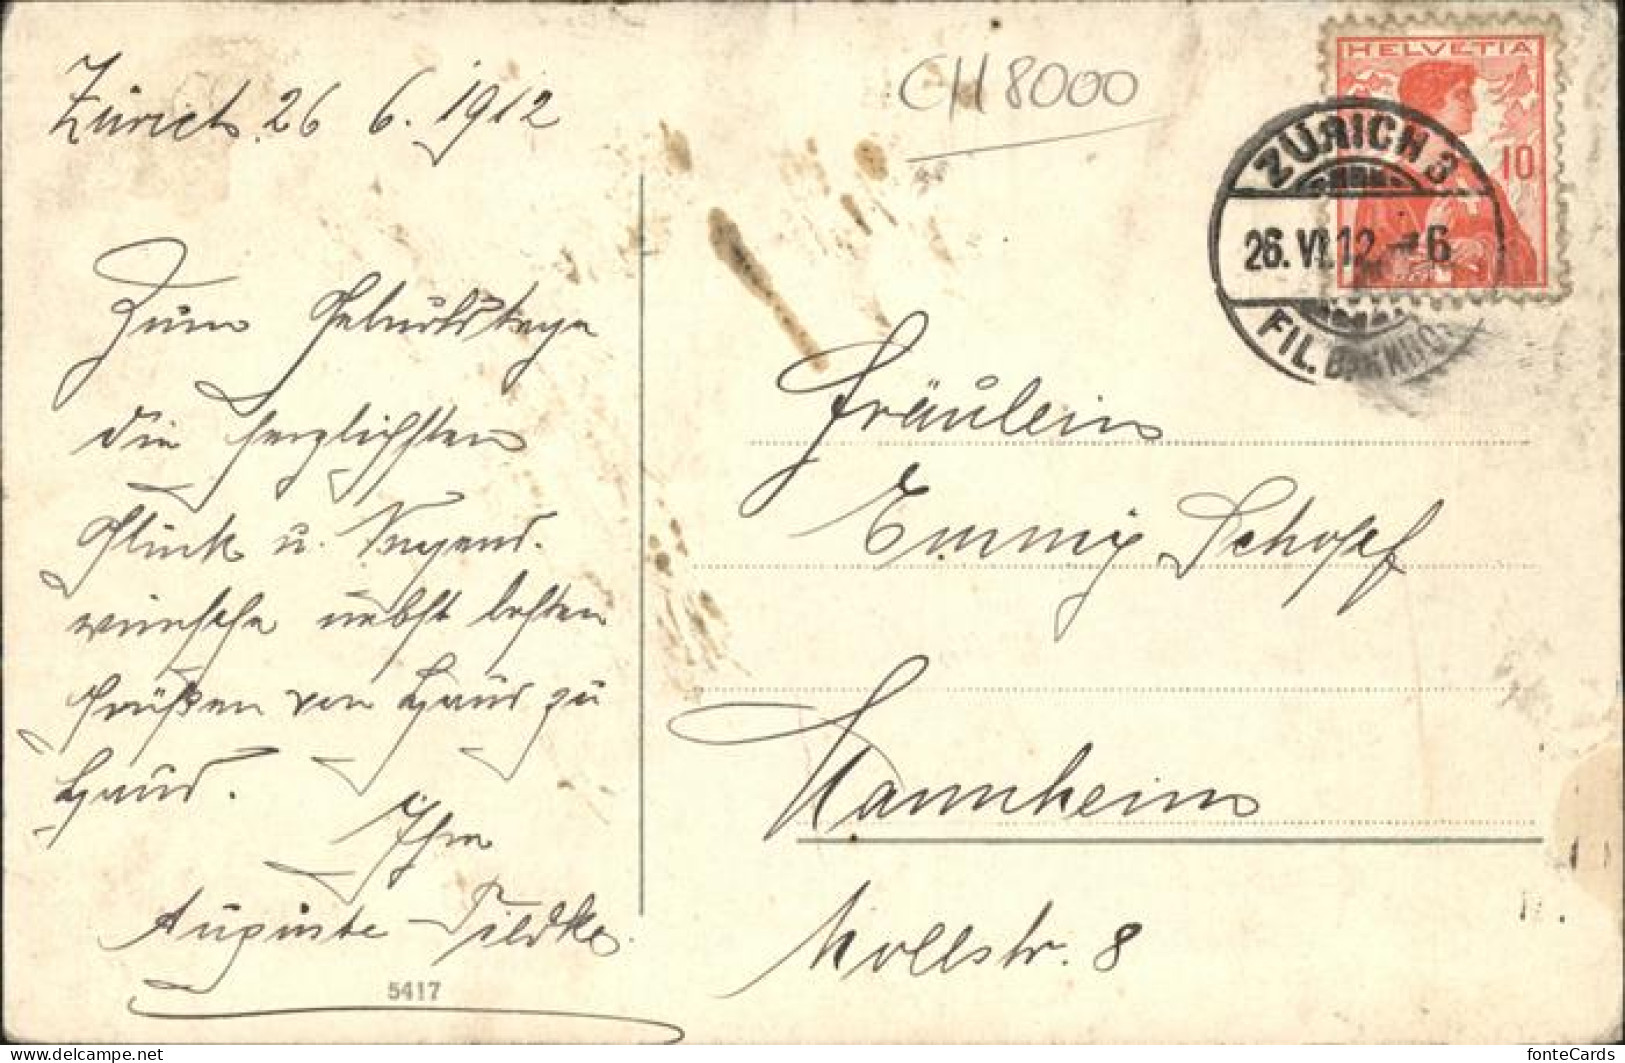 Zürich 26 6. 1912
CH 8000
HELVETIA
10
ZÜRICH 3
26. VI. 12. - 6
FIL. BAHNHOF
Zum Geburtstage
die herzlichsten
Glück u. Segens.
wünsche nebst besten
Grüßen von Haus zu
Haus.
Ihre
Auguste
5417
Fräulein
Emmy Schopf
Mannheim
Mollstr. 8
fonteCards
www.delcampe.net